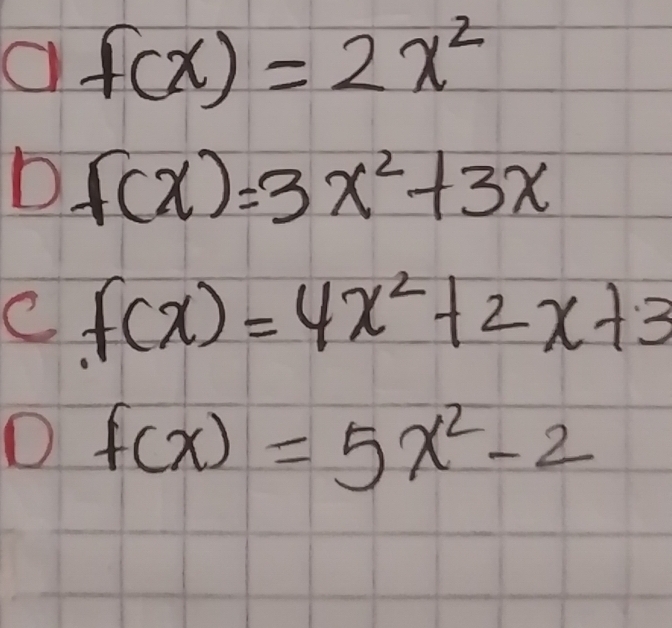 a f(x) = 2x²
b f(x)=3x²+3x
c f(x)=4x²+2x+3
D f(x) = 5x²-2